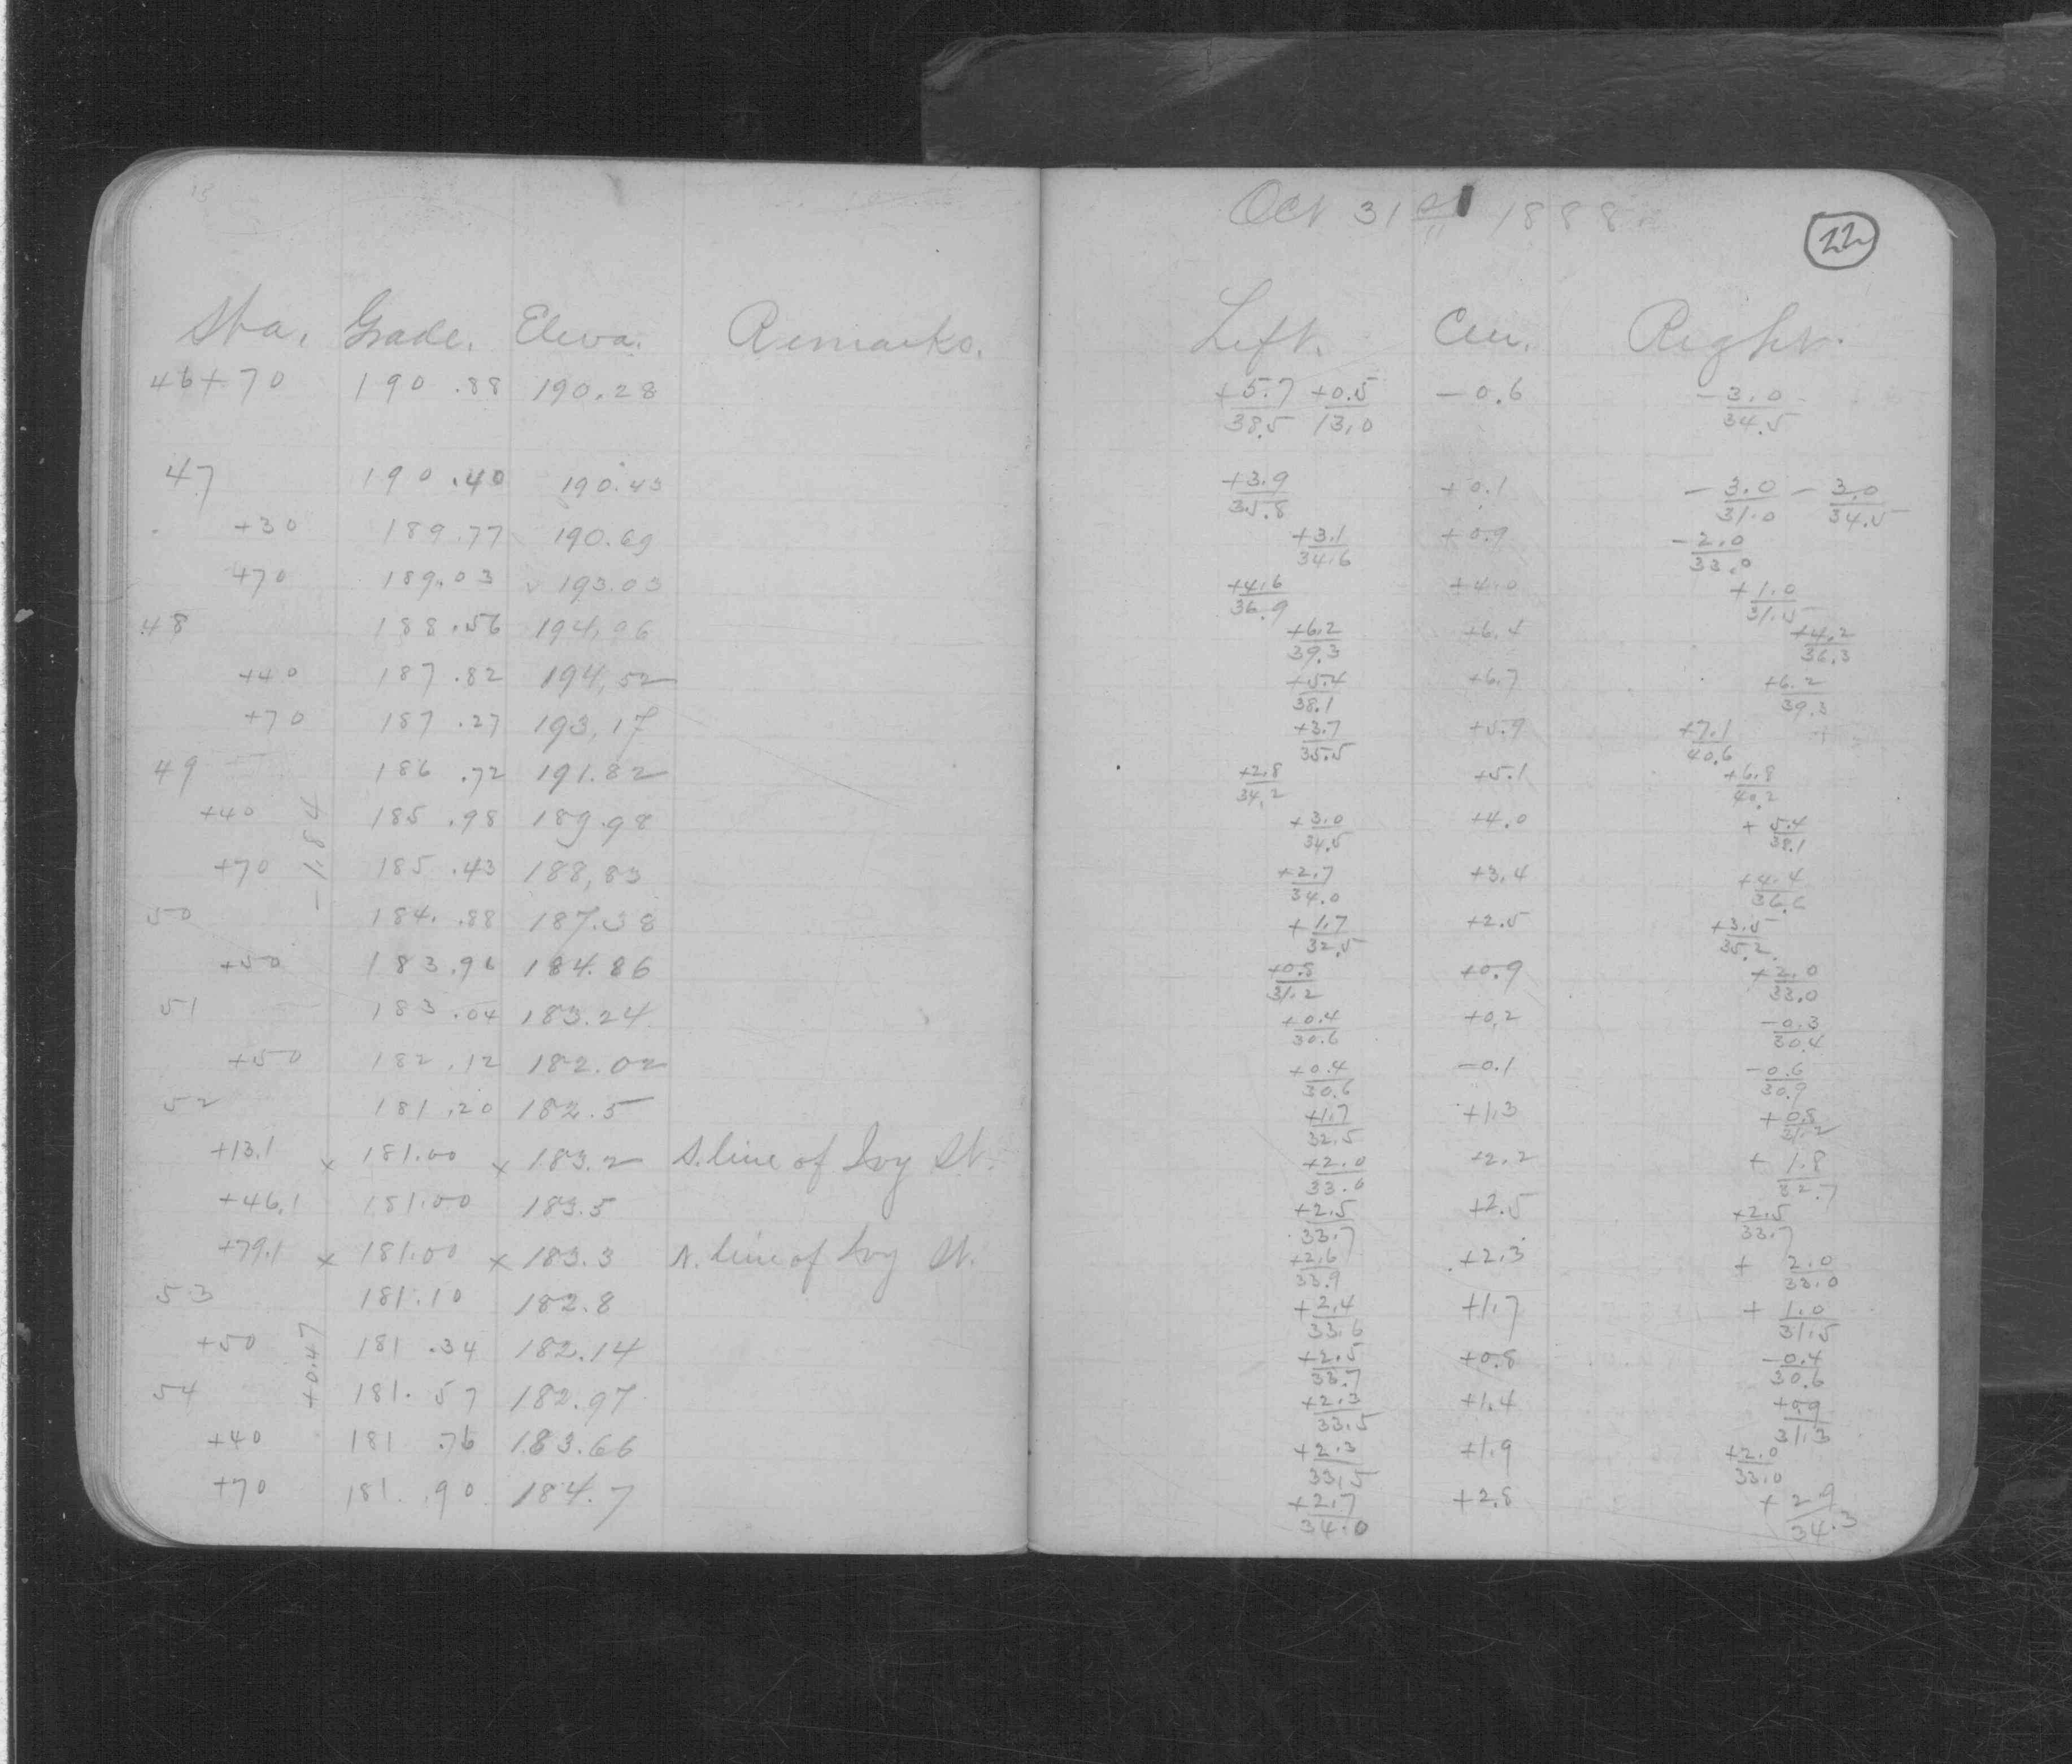 Oct 31st 1888
22
Sta. Grade. Eleva. Remarks. Left. Cen. Right.
46+70 190.88 190.28 +5.7/38.5 +0.5/13.0 -0.6 -3.0/34.5
47 190.40 190.43 +3.9/35.8 +0.1 -3.0/31.0 -3.0/34.5
+30 189.77 190.69 +3.1/34.6 +0.9 -2.0/33.0
+70 189.03 193.03 +4.6/36.9 +4.0 +1.0/31.5
48 188.56 194.96 +6.2/39.3 +6.4 +4.2/36.3
+40 187.82 194.52 +5.4/38.1 +6.7 +6.2/39.3
+70 187.27 193.17 +3.7/35.5 +5.9 +7.1/40.6
49 186.72 191.82 +2.8/34.2 +5.1 +6.8/40.2
+40 185.98 189.98 +3.0/34.5 +4.0 +5.4/38.1
-1.84
+70 185.43 188.83 +2.7/34.0 +3.4 +4.4/36.6
50 184.88 187.38 +1.7/32.5 +2.5 +3.5/35.2
+50 183.96 184.86 +0.8/31.2 +0.9 +2.0/33.0
51 183.04 183.24 +0.4/30.6 +0.2 -0.3/30.4
+50 182.12 182.02 +0.4/30.6 -0.1 -0.6/30.9
52 181.20 182.5 +1.7/32.5 +1.3 +0.8/31.2
+13.1 x 181.00 x 183.2 S. line of Ivy St. +2.0/33.0 +2.2 +1.8/32.7
+46.1 181.00 183.5 +2.5/33.7 +2.5 +2.5/33.7
+79.1 x 181.00 x 183.3 N. line of Ivy St. +2.6/33.9 +2.3 +2.0/33.0
53 181.10 182.8 +2.4/33.6 +1.7 +1.0/31.5
+50 181.34 182.14 +2.5/33.7 +0.8 -0.4/30.6
+0.47
54 181.57 182.97 +2.3/33.5 +1.4 +0.9/31.3
+40 181.76 183.66 +2.3/33.5 +1.9 +2.0/33.0
+70 181.90 184.7 +2.7/34.0 +2.8 +2.9/34.3